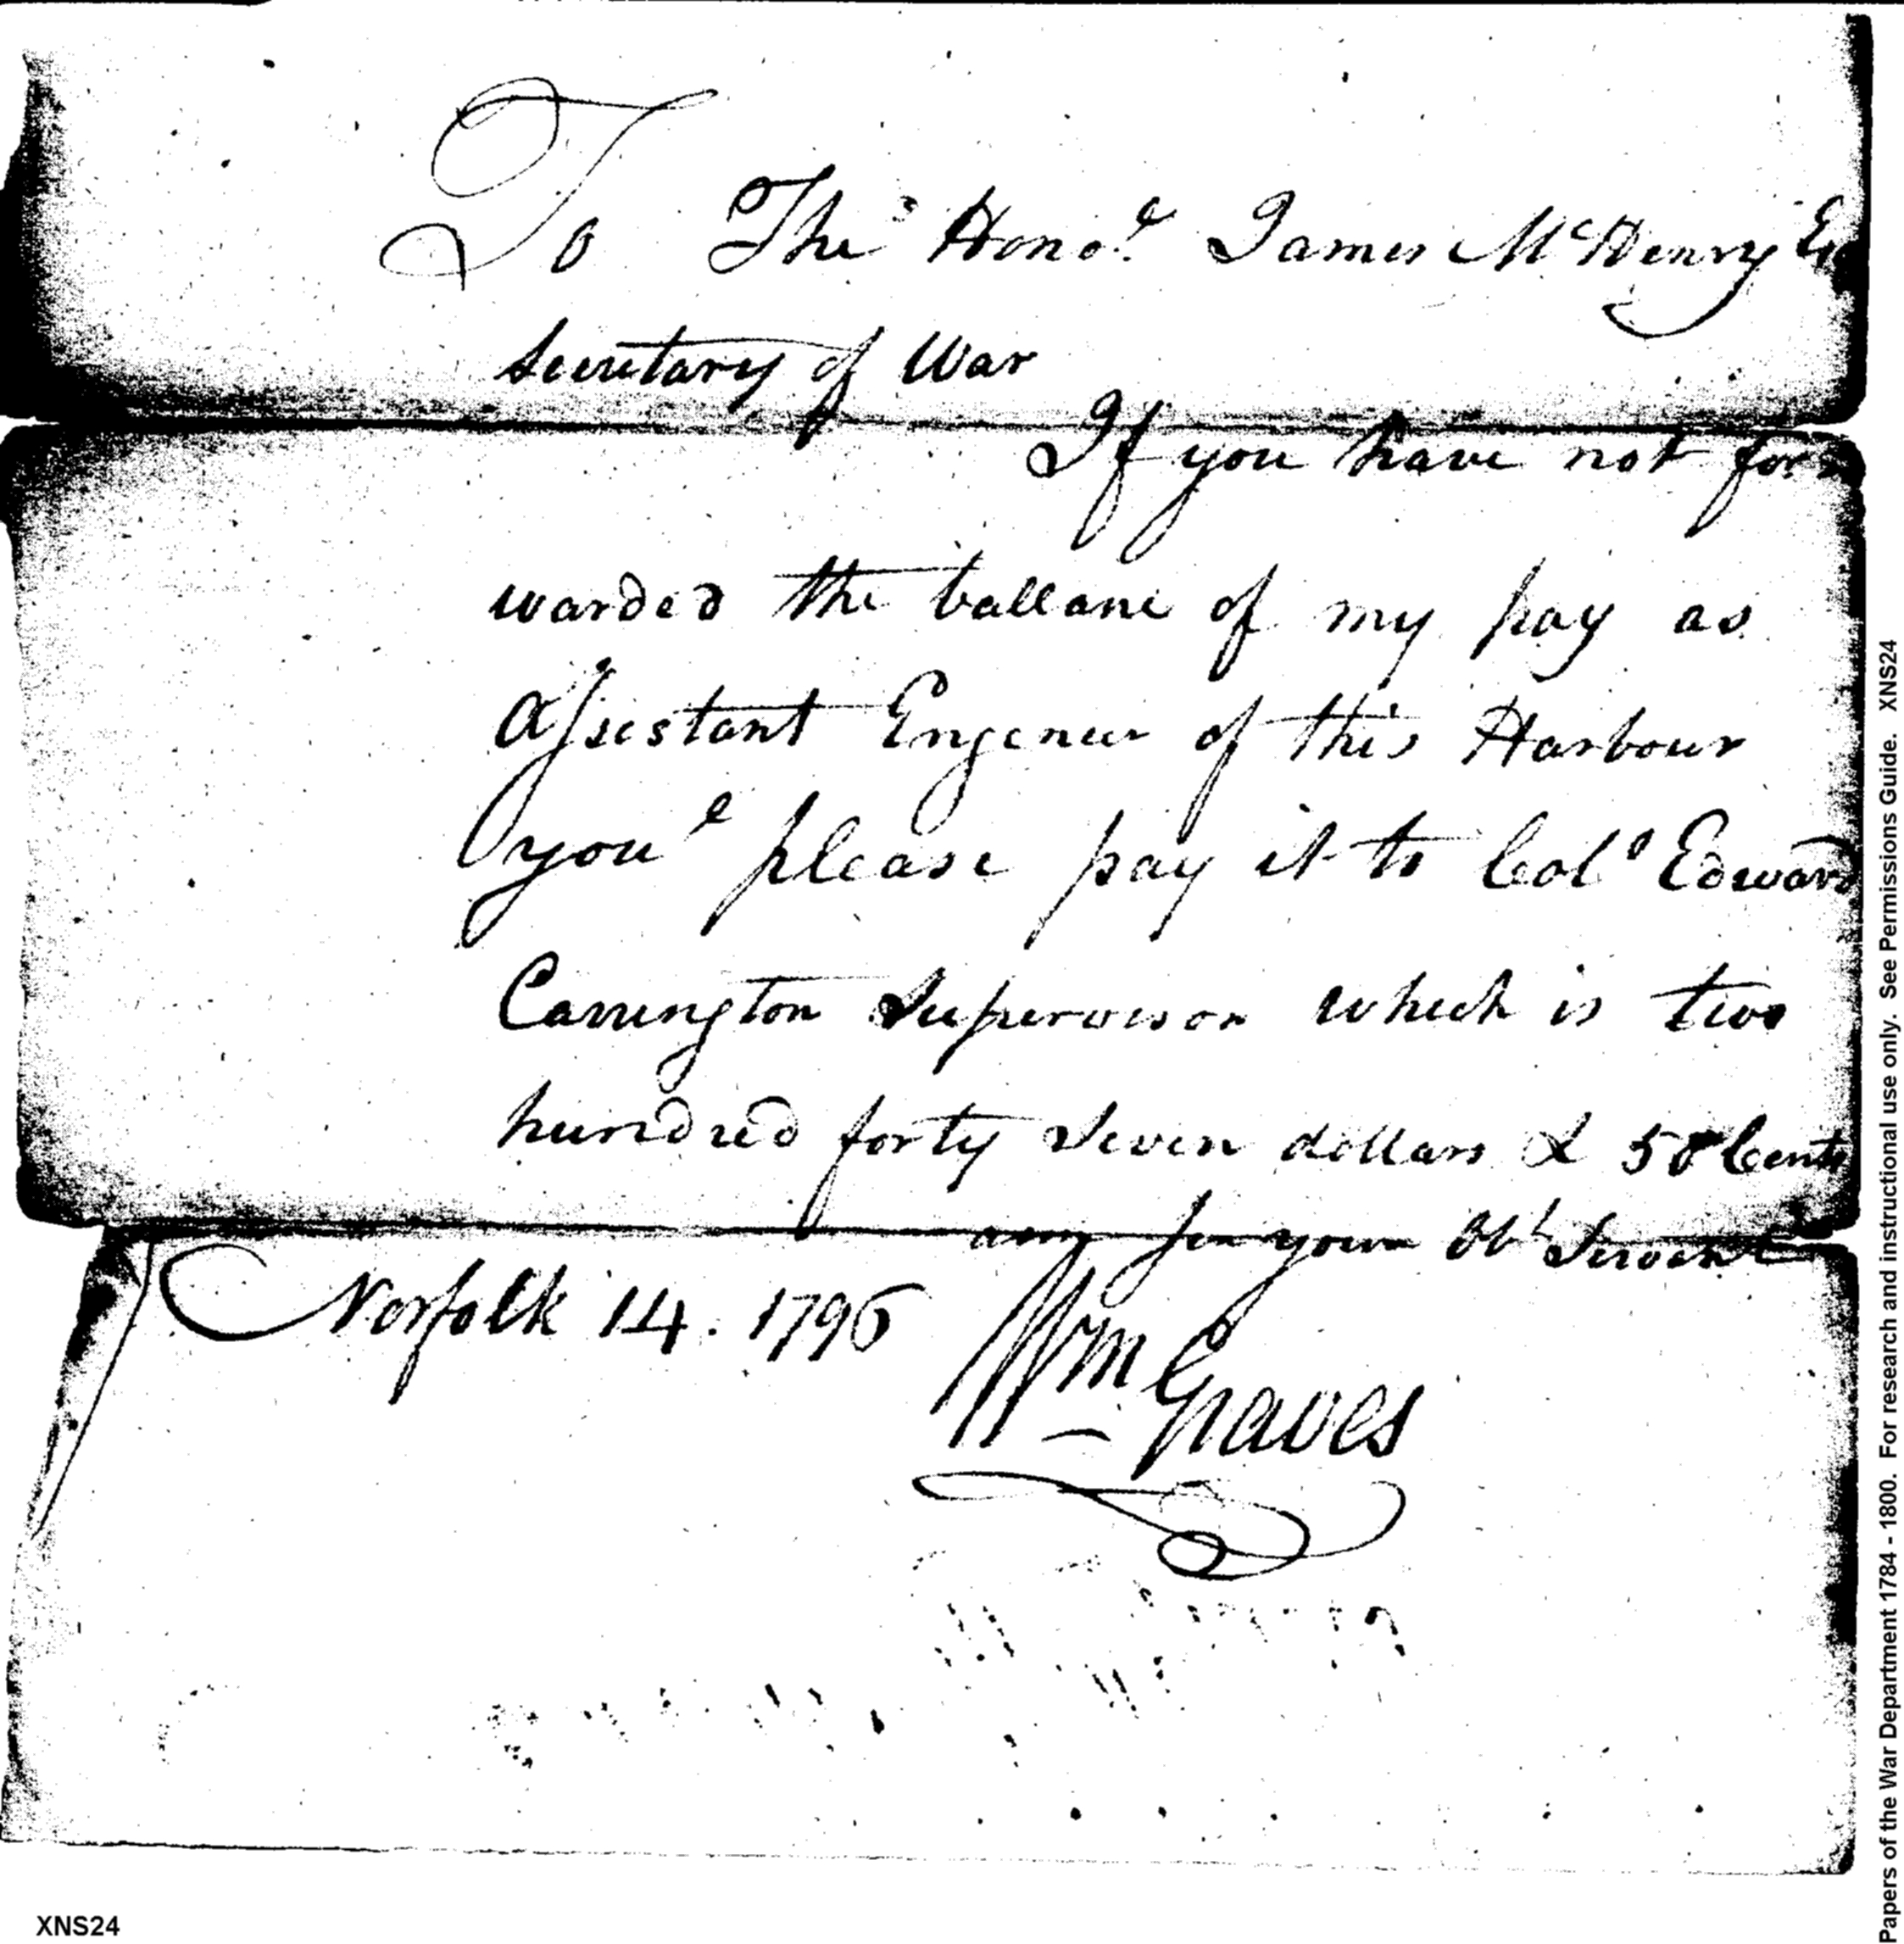 To The Hono.e James McHenry Es
Secretary of War
If you have not for
warded the ballance of my pay as
Assistant Engeneer of this Harbour
youl please pay it to Colo Edward
Carrington Supervisor which is two
hundred forty seven dollars & 50 Cents
your Obt Servent
Norfolk 14. 1796
Wm Graves
XNS24
Papers of the War Department 1784 - 1800. For research and instructional use only. See Permissions Guide. XNS24